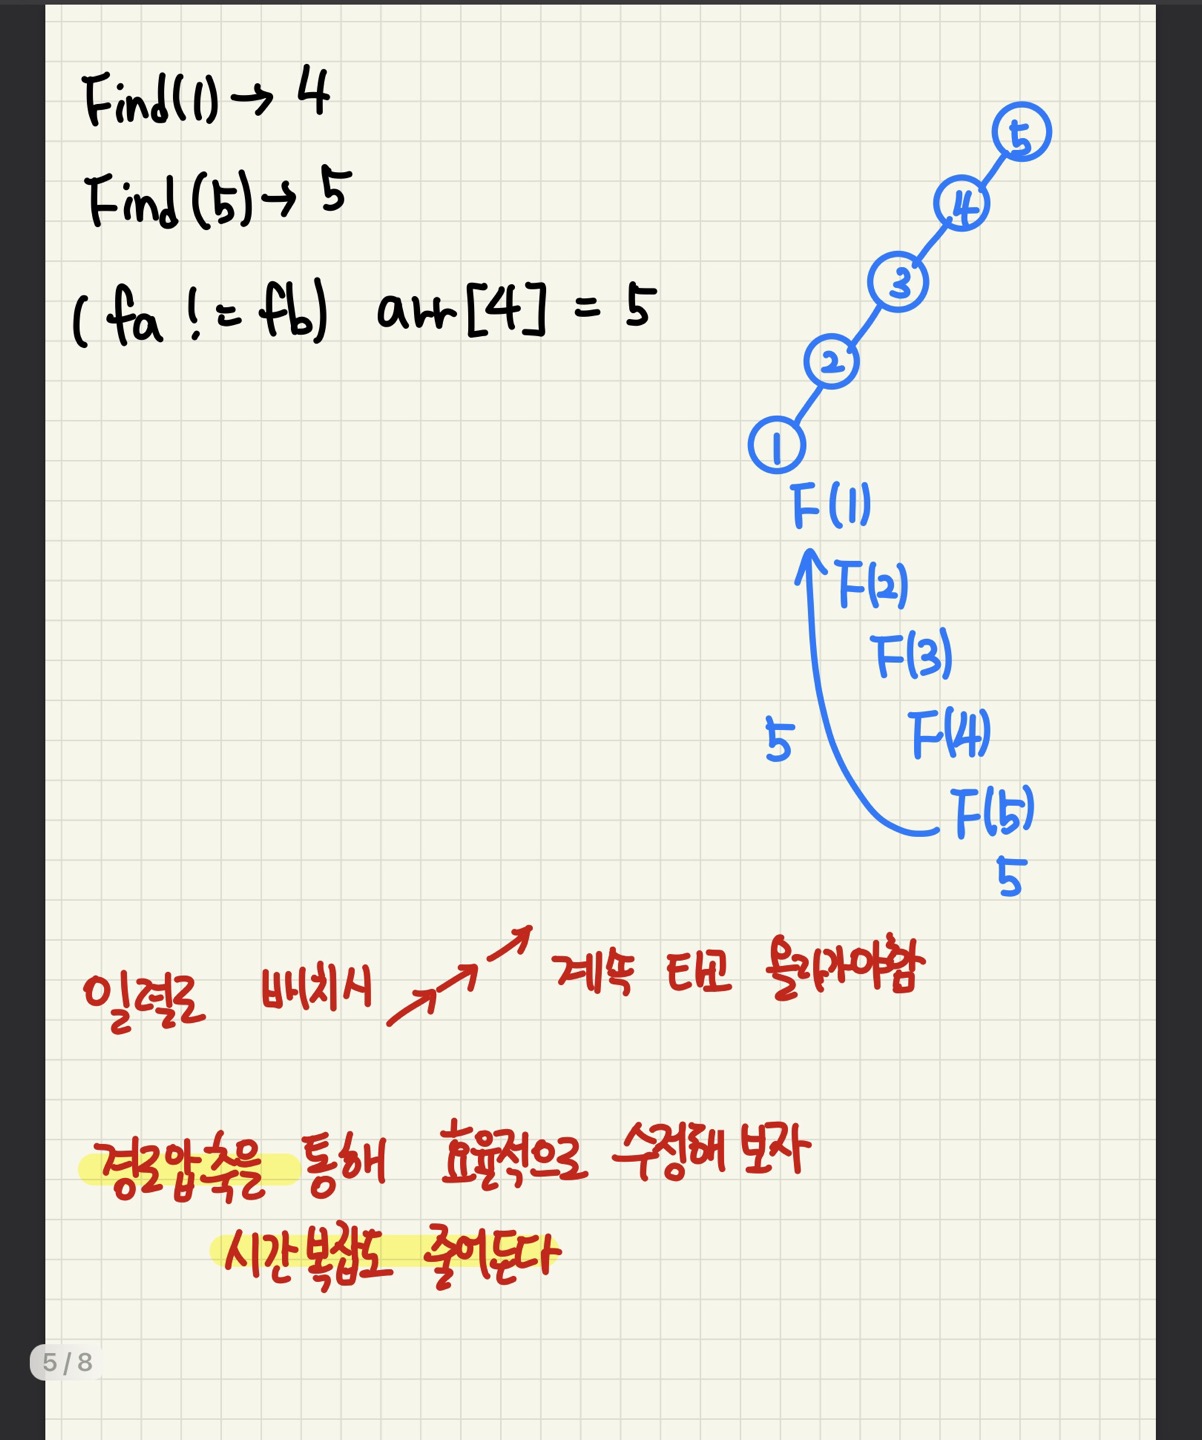 Find(1) → 4
Find(5) → 5
(fa != fb) arr[4] = 5
5
4
3
2
1
F(1)
F(2)
F(3)
F(4)
5
F(5)
5
일렬로 배치시 계속 타고 올라가야함
경로압축을 통해 효율적으로 수정해 보자
시간복잡도 줄어든다
5 / 8